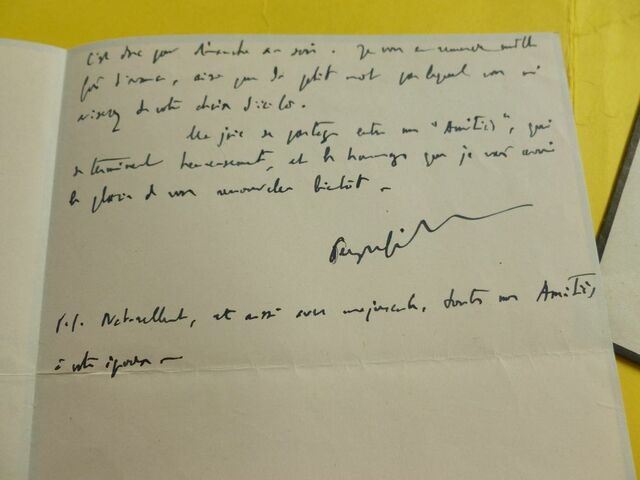 C'est donc pour dimanche au soir. Je vous en remercie mille
fois d'avance, ainsi que du petit mot par lequel vous m'
de votre choix d'
Ma joie se partage entre vos "Amitiés", qui
se terminent heureusement, et les hommages que je vais avoir
le plaisir de vous renouveler bientôt -
P.S. Naturellement, et aussi avec majuscule, toutes mes Amitiés
à votre épouse -